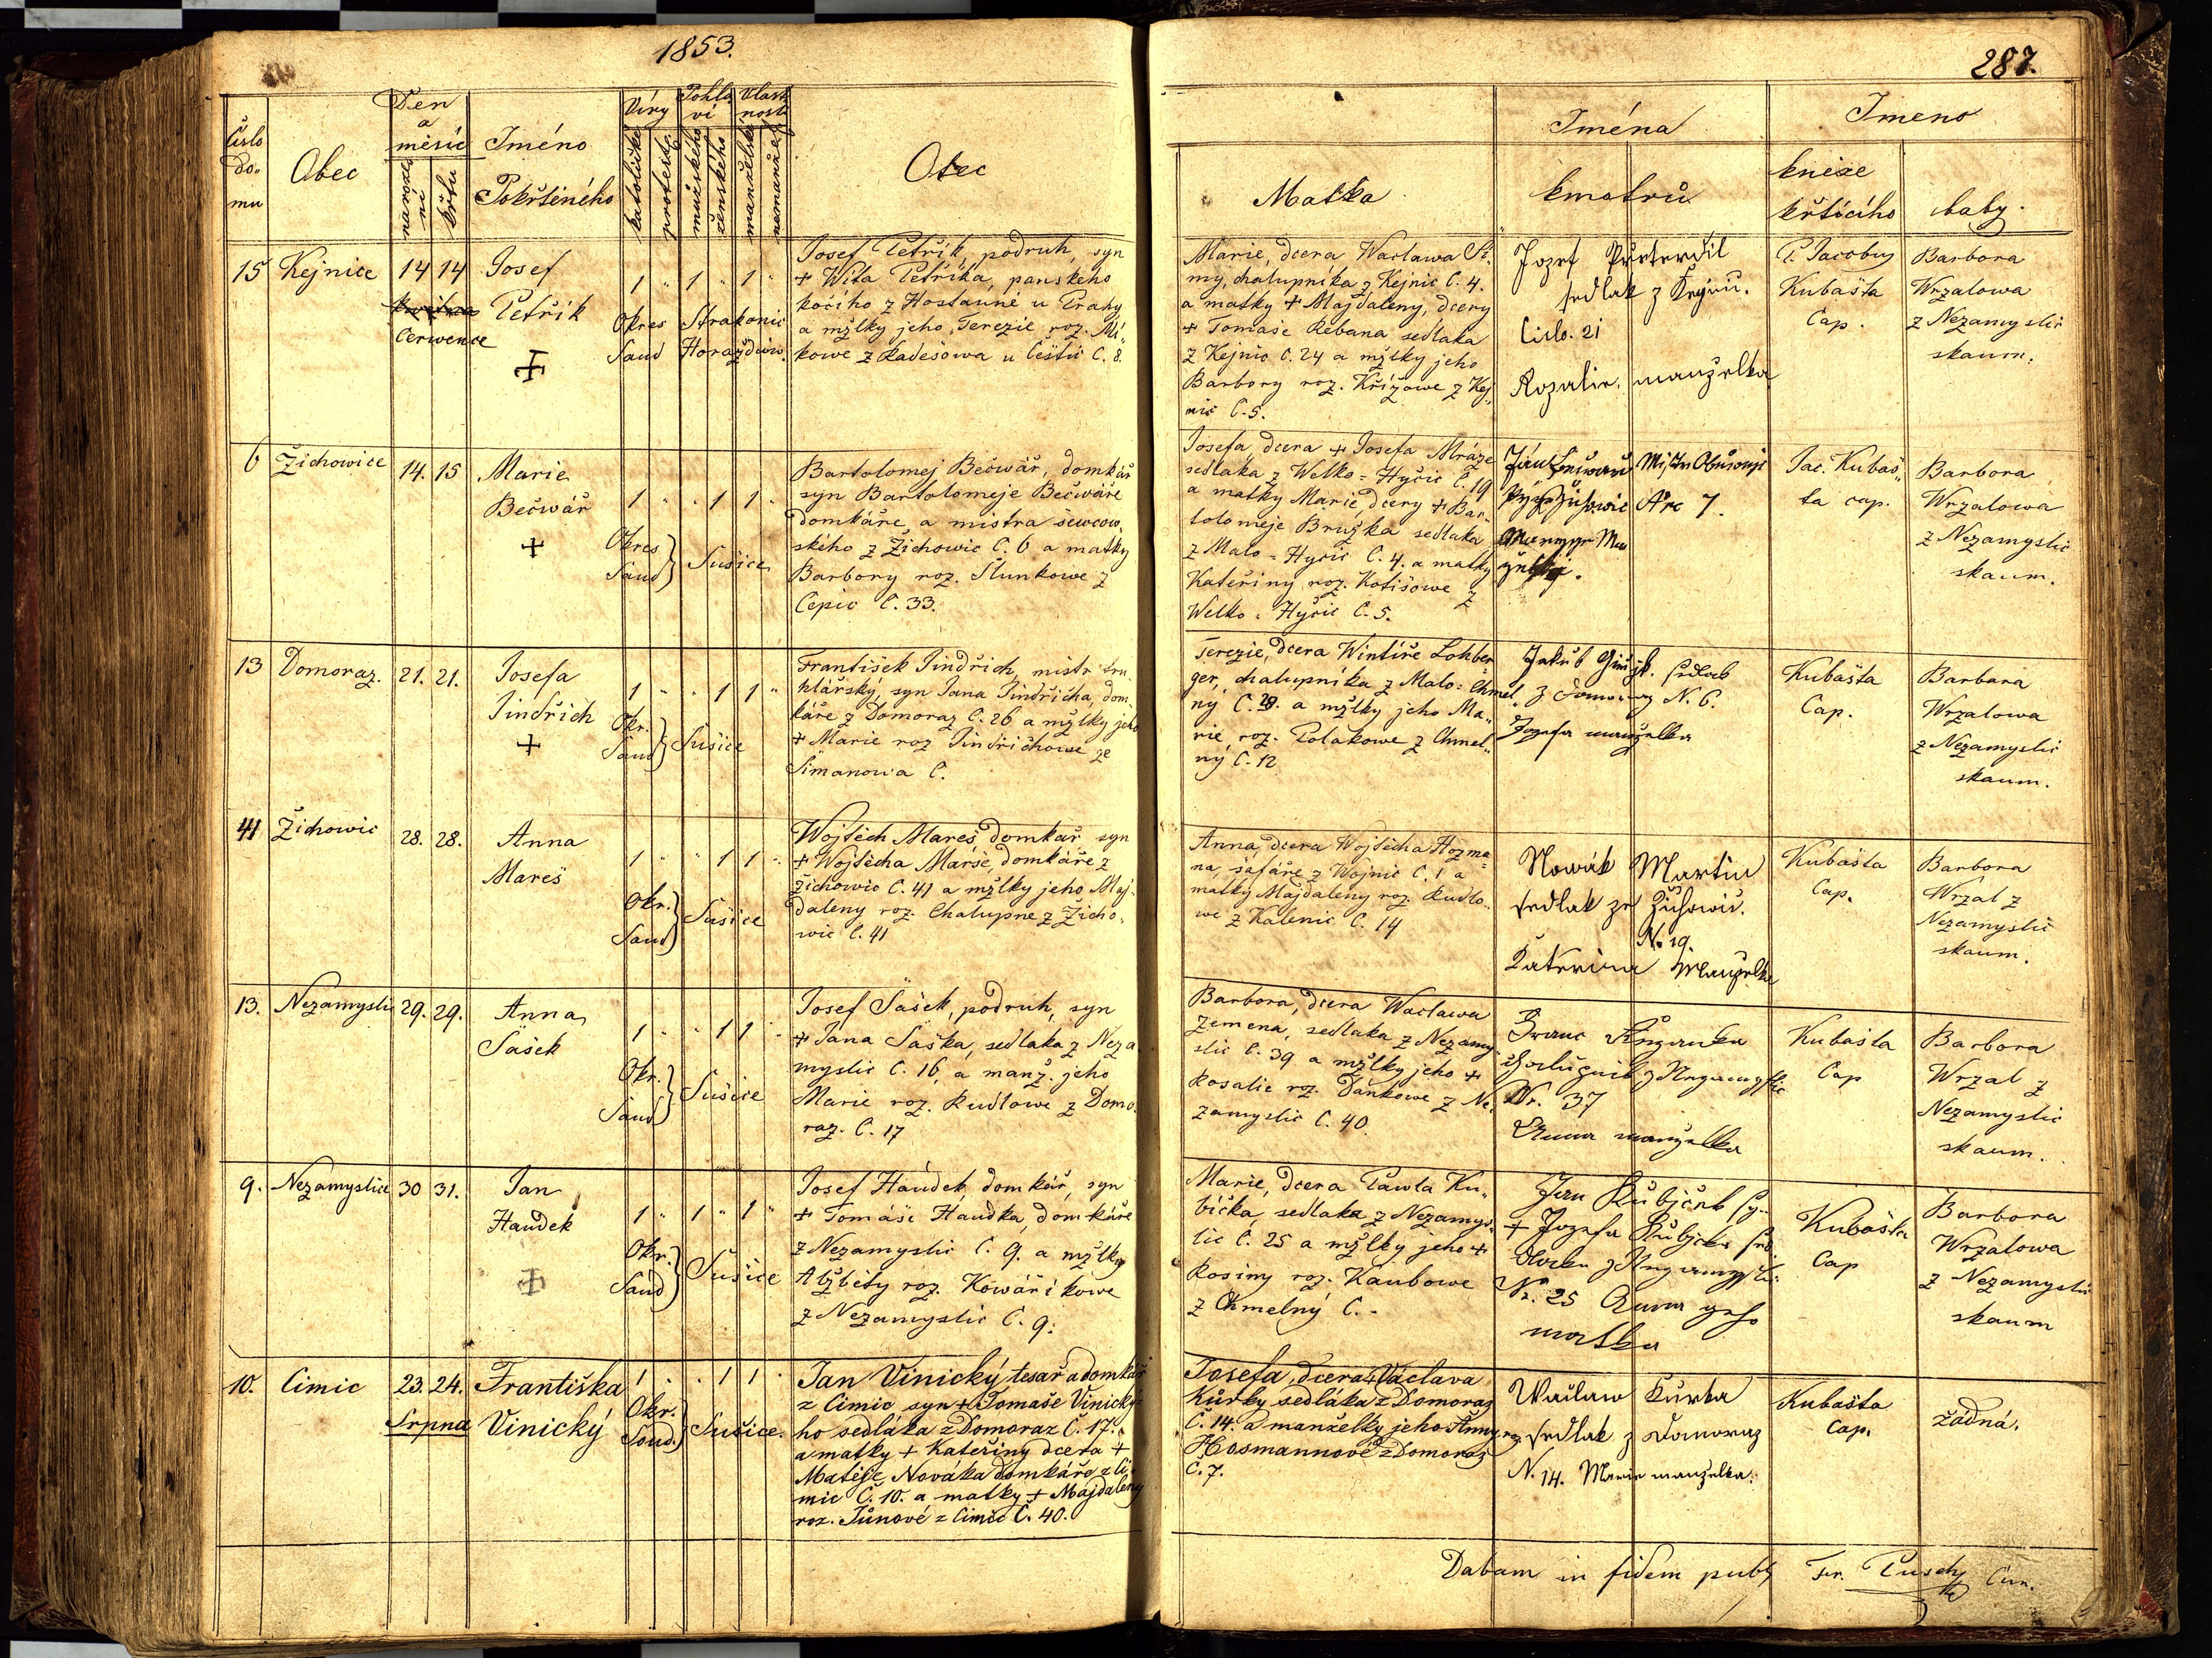 1853.
287.
Číslo do- mu
Obec
Den a měsíc
narozeni
křtu
Iméno Pokřtěného
Víry
katolické
protest.
Pohlaví
mužského
ženského
Vlastnosti
manželské
nemanžel.
Otec
Matka
Iména kmotrů
Imeno
kněze křtícího
baby.
15 Kejnice 14 14 Josef 1 " 1 " 1 "
Července Petřík
Okres Strakonic
Saud Horažďow.
Josef Petřík, podruh, syn
+ Wita Petříka, panského
kočího z Hostauně u Prahy
a mžlky jeho Terezie roz. Mi„
kowe z Radešowa u Čéstic Č. 8.
Marie, dcera Wacława Ši„
my, chalupníka z Kejnic Č. 4.
a matky + Majdaleny, dcery
+ Tomáše Rébana sedlaka
z Kejnic Č. 24 a mžlky jeho
Barbory roz. Křížowe z Kej„
nic Č. 5.
Jozef
sedlak z
Cislo. 21
Rozalie manželka
P. Jacobus
Kubašta
Cap.
Barbora
Wrzalowa
z Nezamyslic
skaum.
6 Žichowice 14. 15 Marie 1 " " 1 1 "
Bečwář
Okres
Saud } Sušice
Bartolomej Bečwář, domkář
syn Bartolomeje Bečwáře
domkáře, a mistra šewcow„
ského z Žichowic Č. 6 a matky
Barbory roz. Slunkowe z
Čepic Č. 33.
Josefa, dcera + Josefa Mráze
sedlaka z Welko-Hyčic Č. 19
a matky Marie, dcery + Bar„
tolomeje Bružka sedlaka
z Malo-Hyčic Č. 4. a matky
Kateřiny roz. Kotišowe z
Welko-Hyčic Č. 5.
Jac. Kubaš„
ta cap.
Barbora
Wrzalowa
z Nezamyslic
skaum.
13 Domoraz. 21. 21. Josefa 1 " " 1 1 "
Jindřich
Okr.
Saud } Sušice
František Jindřich, mistr tru„
hlářský, syn Jana Jindřicha, dom„
káře z Domoraz Č. 26 a mžlky jeho
+ Marie roz Jindřichowe ze
Šimanowa Č.
Terezie, dcera Wintíře Lohber„
ger, chalupníka z Malo-Chmel„
ný Č. 28. a mžlky jeho Ma„
rie, roz. Polakowe z Chmel„
ný Č. 12
Jakub sedlak
z Domoraz N. 6.
Jozefa manželka
Kubašta
Cap.
Barbara
Wrzalowa
z Nezamyslic
skaum.
41 Žichowic 28. 28. Anna 1 " " 1 1 "
Mareš
Okr.
Saud } Sušice
Wojtěch Mareš, domkář syn
+ Wojtěcha Marše, domkáře z
Žichowic Č. 41 a mžlky jeho Maj„
daleny roz. Chalupne z Žicho„
wic Č. 41
Anna, dcera Wojtěcha Hozma„
na, šafáře z Wojnic Č. 1 a
matky Majdaleny roz. Rudlo„
we z Kalenic Č. 14
Nowák Martin
sedlak ze Žichowic.
N. 19.
Katerina Manželka
Kubašta
Cap.
Barbora
Wrzal z
Nezamyslic
skaum.
13. Nezamyslic 29. 29. Anna 1 " " 1 1 "
Šašek
Okr.
Saud } Sušice
Josef Šašek, podruh, syn
+ Jana Šaška, sedlaka z Neza„
myslic Č. 16, a manž. jeho
Marie roz. Rudlowe z Domo„
raz. Č. 17
Barbora, dcera Wacława
Zemena, sedlaka z Nezamy„
slic Č. 39 a mžlky jeho +
Rosalie roz. Daňkowe z Ne„
zamyslic Č. 40.
Franc
z Nezamyslic
Nr. 37
Anna manželka
Kubašta
Cap
Barbora
Wrzal z
Nezamyslic
skaum.
9. Nezamyslice 30 31. Jan 1 " 1 " 1 "
Haudek
Okr.
Saud } Sušice
Josef Haudek, domkář, syn
+ Tomáše Haudka, domkáře
z Nezamyslic Č. 9. a mžlky
Alžběty roz. Kowáříkowe
z Nezamyslic Č. 9.
Marie, dcera Pawla Ku„
bíčka, sedlaka z Nezamys„
lic Č. 25 a mžlky jeho +
Rosiny roz. Kaubowe
z Chmelný Č. -
Jan Kubiček sy-
+ Jozefa Kubička sed-
laka z Nezamysli-
Nr. 25 Anna geho
matka
Kubašta
Cap
Barbora
Wrzalowa
z Nezamyslic
skaum
10. Čimic 23. 24. Františka 1 " " 1 1 "
Srpna Vinický
Okr.
Soud. } Sušice.
Jan Vinický tesař a domkář
z Čimic syn + Tomaše Vinický-
ho sedláka z Domoraz Č. 17.
a matky + Kateřiny dcera +
Matěje Nováka domkáře z Či-
mic Č. 10. a matky + Majdaleny
roz. Tůnové z Čimic Č. 40.
Josefa, dcera + Václava
Kůrky sedláka z Domoraz
Č. 14. a manželky jeho Anny roz.
Hosmannové z Domoraz
Č. 7.
Waclaw Kůrka
sedlak z Domoraz
N. 14. Marie manželka.
Kubašta
Cap.
žádná.
Datam in fidem publ. Fr. Pusch Cur.